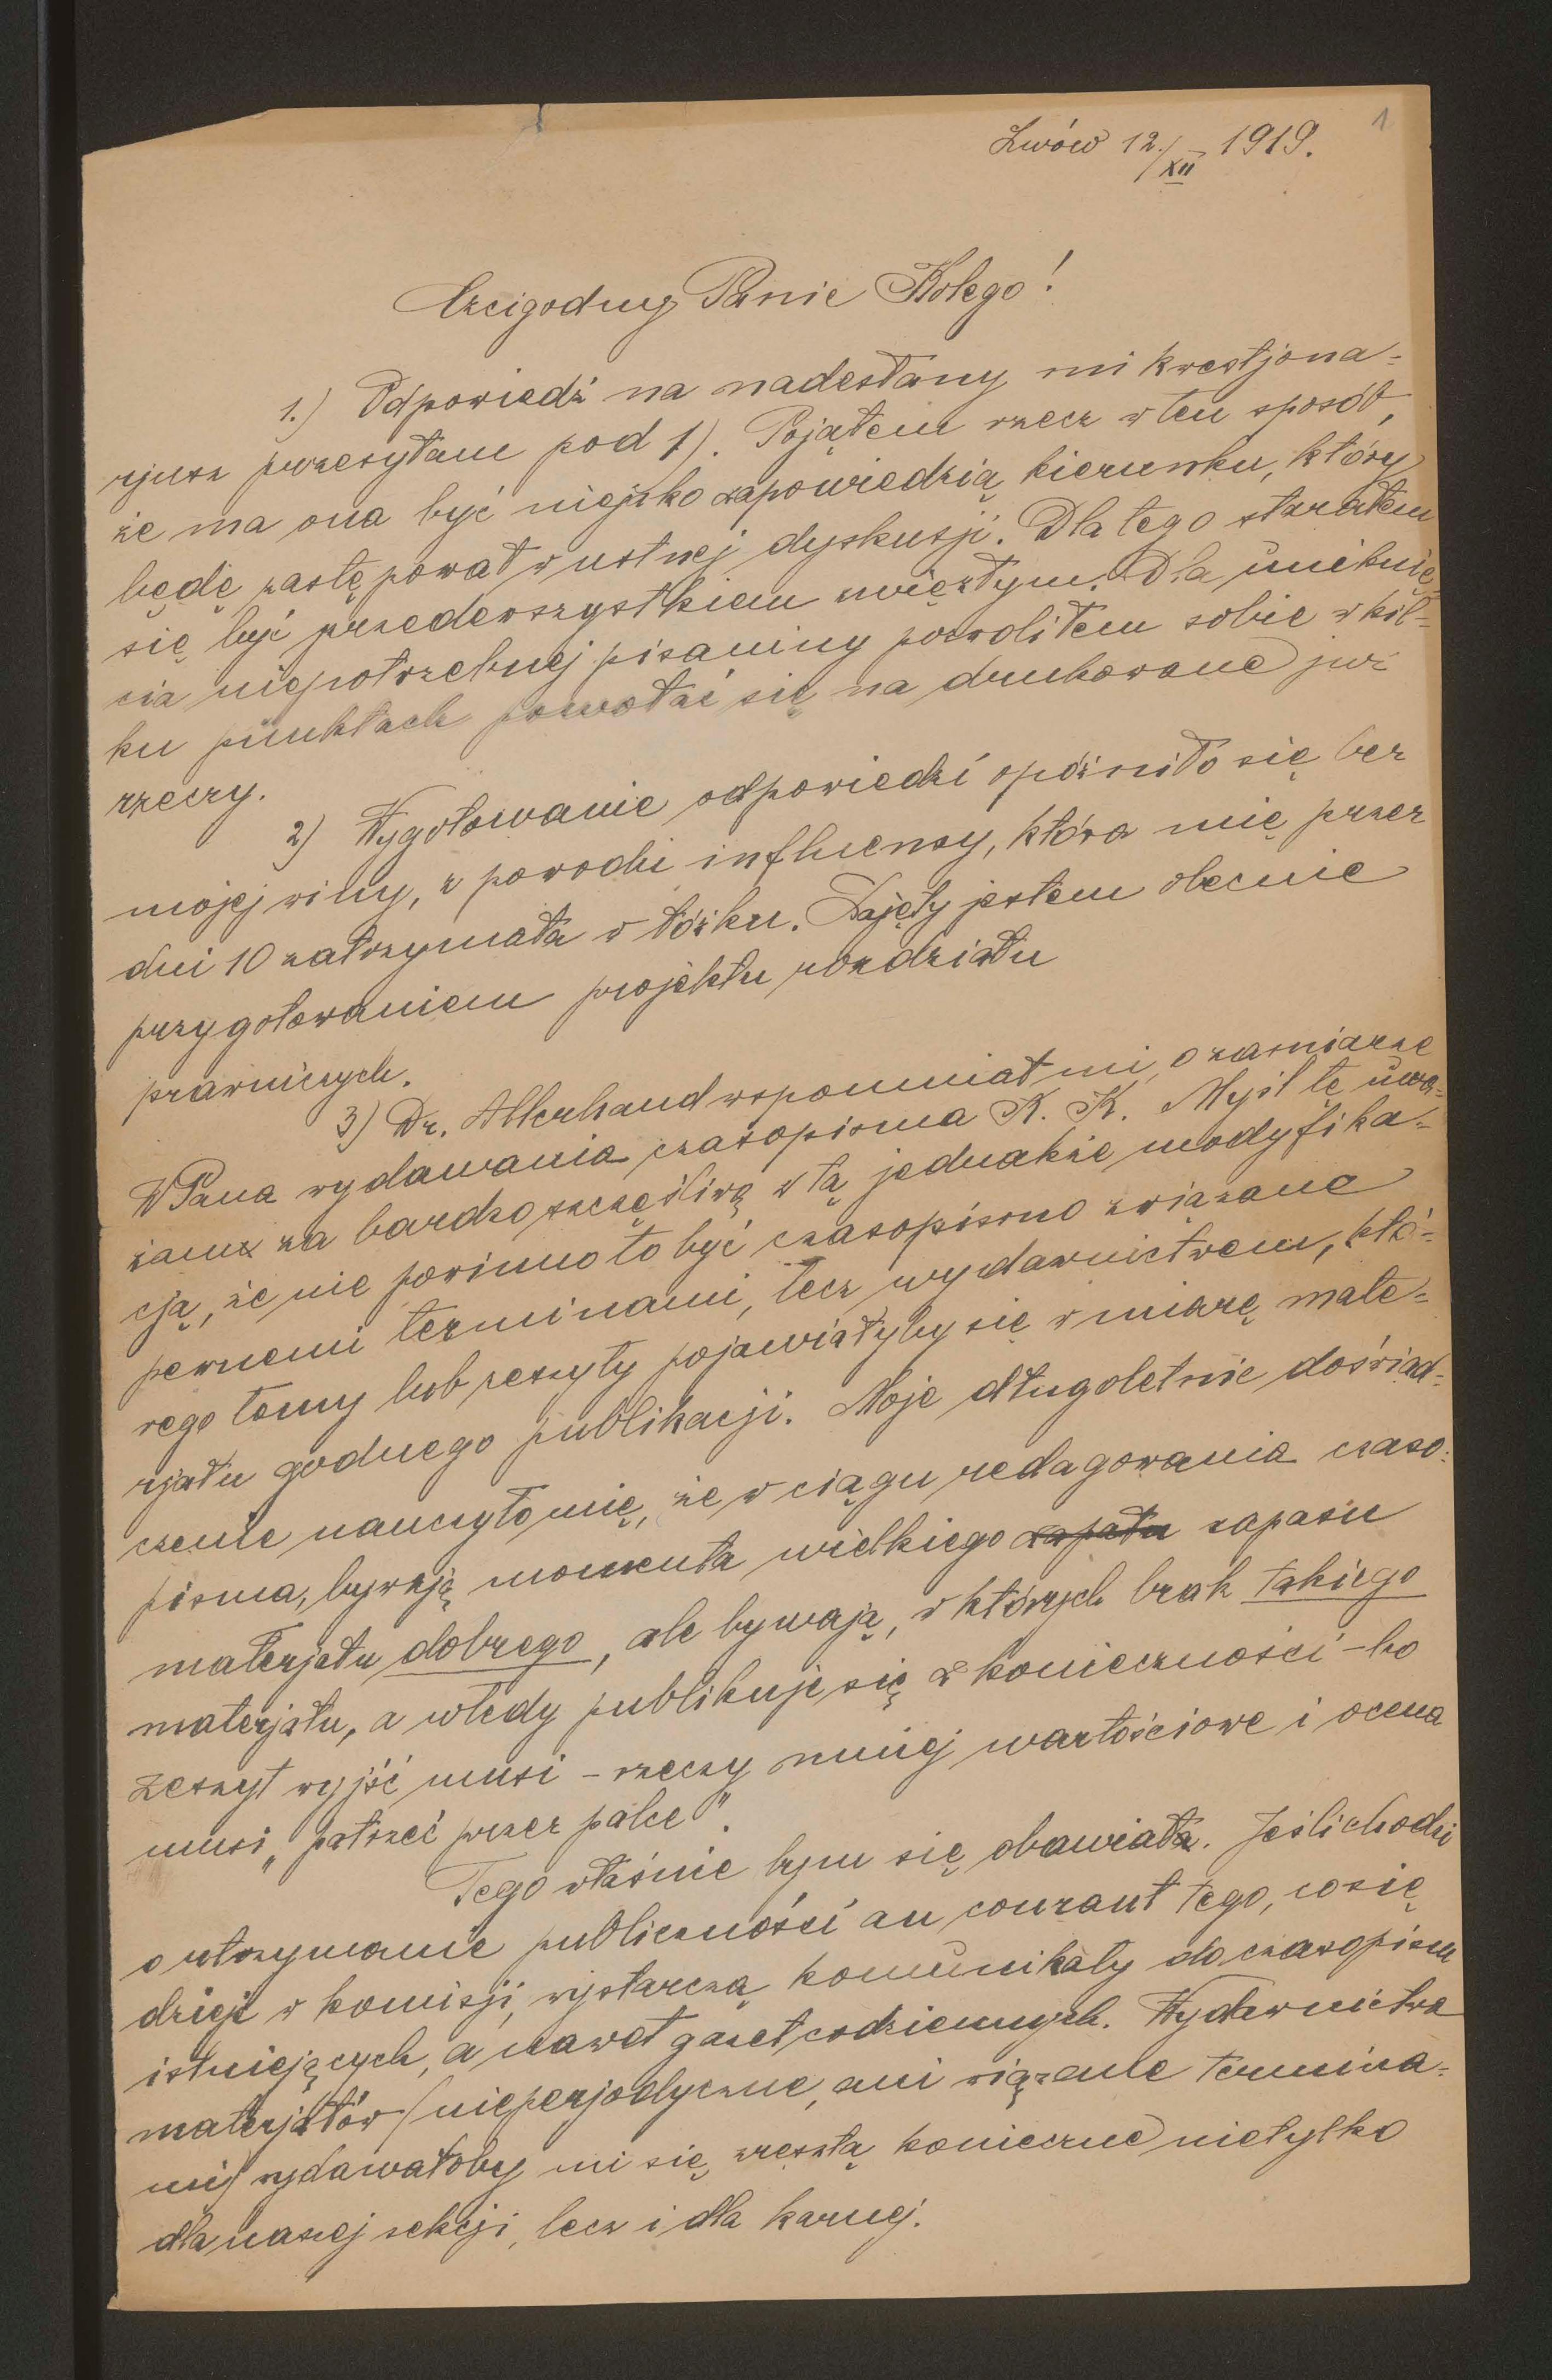 1
Lwów 12./XII 1919.
Czcigodny Panie Kolego!
1.) Odpowiedź na nadesłany mi kwestjona-
rjusz przesyłam pod 1). Pojąłem rzecz w ten sposób,
że ma ona być niejako zapowiedzią kierunku, który
będę zastępował w ustnej dyskusji. Dla tego starałem
się być przedewszystkiem zwięzłym. Dla uniknię-
cia niepotrzebnej pisaniny pozwoliłem sobie w kil-
ku punktach powołać się na drukowane już
rzeczy.
2) Wygotowanie odpowiedzi opóźniło się bez
mojej winy, z powodu influenzy, która mię przez
dni 10 zatrzymała w łóżku. Zajęty jestem obecnie
przygotowaniem projektu rozdziału
prawniczych.
3) Dr. Allerhand wspomniał mi, o zamiarze
WPana wydawania czasopisma K. K. Myśl tę uwa-
żam za bardzo szczęśliwą z tą jednakże modyfika-
cją, że nie powinno to być czasopismo związane
pewnemi terminami, lecz wydawnictwem, któ-
rego tomy lub zeszyty pojawiałyby się w miarę mate-
rjału godnego publikacji. Moje długoletnie doświad-
czenie nauczyło mię, że w ciągu redagowania czaso-
pisma, bywają momenta wielkiego zapału zapasu
materjału dobrego, ale bywają, w których brak takiego
materjału, a wtedy publikuje się z konieczności – bo
zeszyt wyjść musi – rzeczy mniej wartościowe i ocena
musi „patrzeć przez palce".
Tego właśnie bym się obawiała. Jeśli chodzi
o utrzymanie publiczności au courant tego, co się
dzieje w komisji, wystarczą komunikaty do czasopism
istniejących, a nawet gazet codziennych. Wydawnictwa
materjałów (nieperjodyczne, ani wiązane termina-
mi) wydawałoby mi się zresztą konieczne nietylko
dla naszej sekcji, lecz i dla karnej.